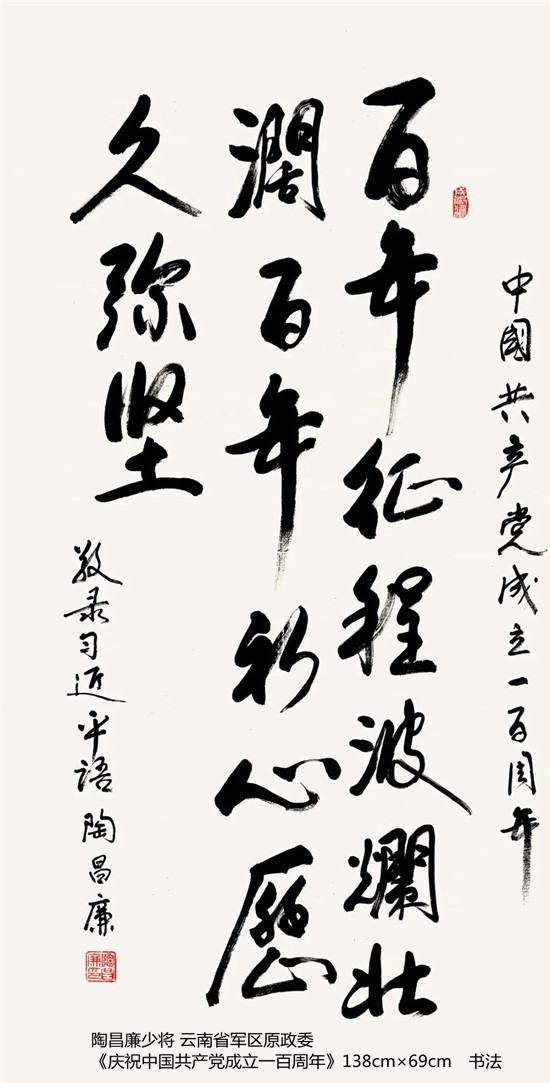 中國共产党成立一百周年
百年征程波爛壮
濶百年初心歷
久弥坚
敬录习近平语 陶昌廉
陶昌廉少将 云南省军区原政委
《庆祝中国共产党成立一百周年》138cm×69cm 书法